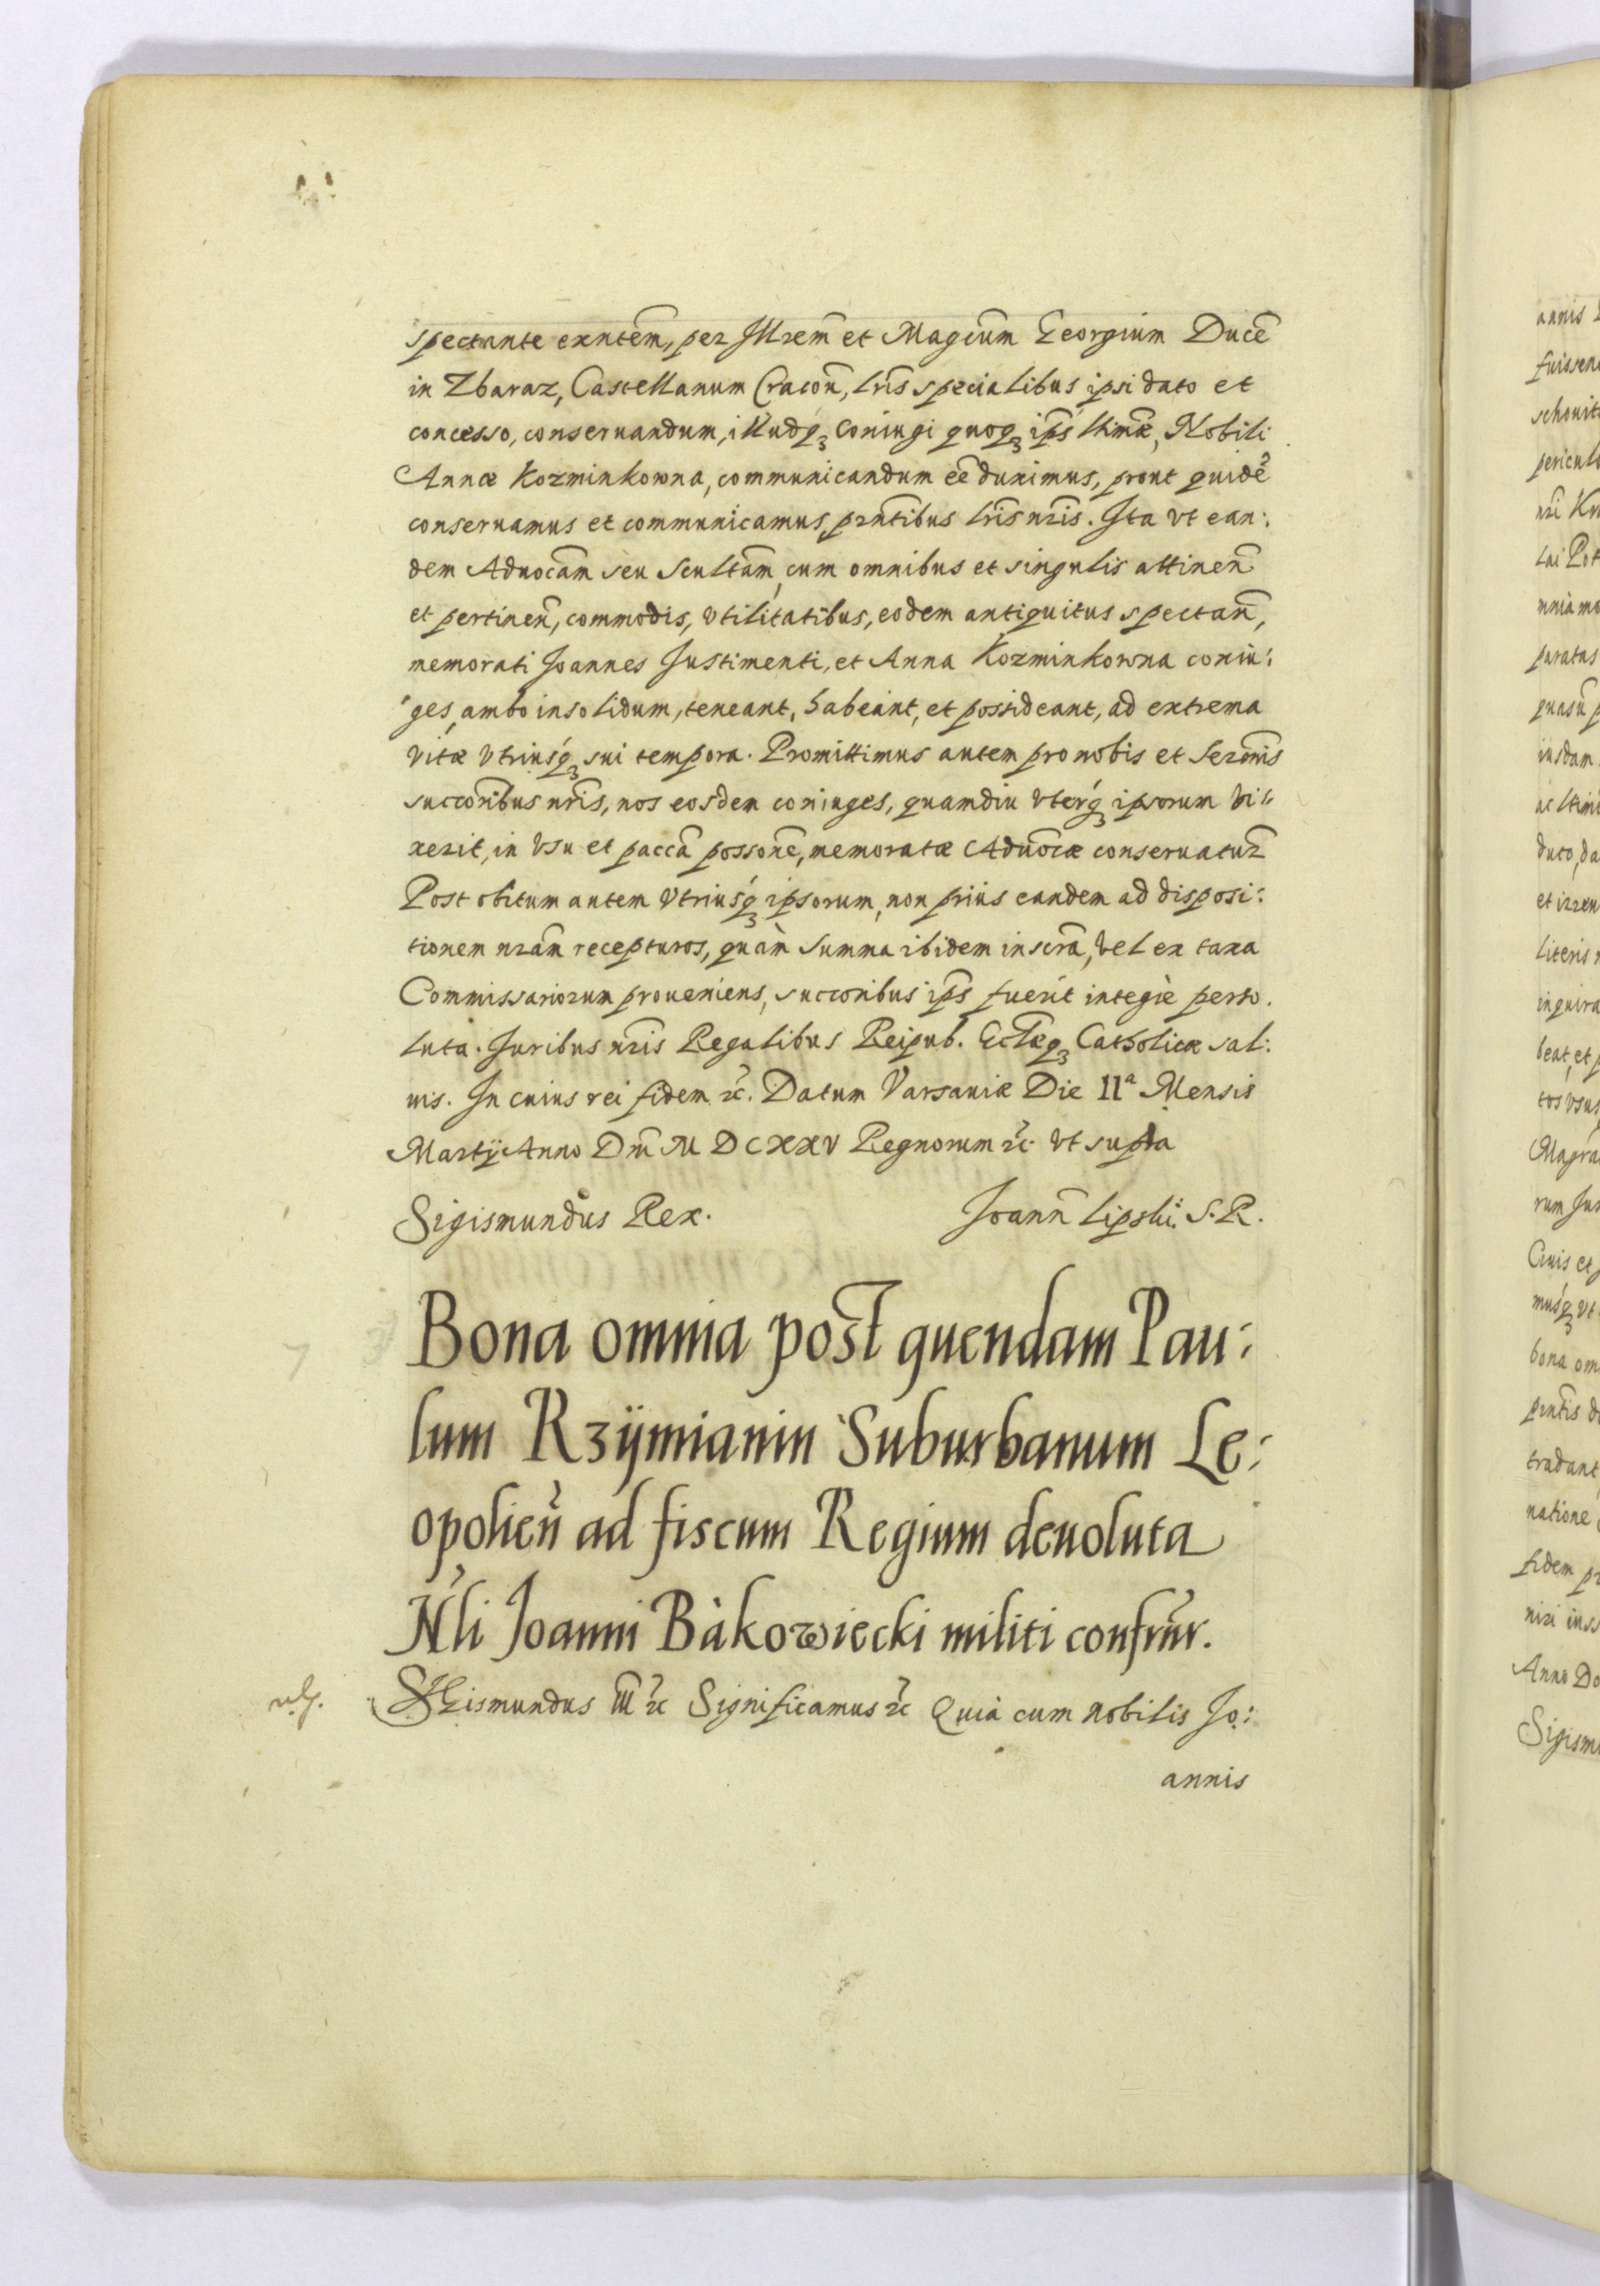 spectante exñtem̃, per Illrem̃ et Magcum̃ Georgium Ducẽ
in Zbaraz, Castellanum Cracoñ, lris̃ specialibus ipsi dato et
concesso, conseruandum, illudq3 Coniugi quoq3 ips̃ ltimæ̃, Nobili
Annæ Kozminkowna, communicandum eẽ duximus, prout quidẽ
conseruamus et communicamus, prñtibus lris̃ nris̃. Ita vt ean:
dem Aduocam̃ seu Scultam̃, cum omnibus et singulis attineñ
et pertineñ, commodis, vtilitatibus, eodem antiquitus spectañ,
memorati Joannes Justimenti, et Anna Kozminkowna coniu:
ges, ambo insolidum, teneant, habeant, et possideant, ad extrema
vitæ vtriusq3 sui tempora. Promittimus autem pro nobis et Serm̃is
succorib̃us nris̃, nos eosdem coniuges, quamdiu vterq3 ipsorum vi:
xerit, in vsu et paccã possonẽ, memoratæ Aduocæ̃ conseruatur̃
Post obitum autem vtriusq3 ipsorum, non prius eandem ad disposi:
tionem nram̃ recepturos, quàm summa ibidem inscrã, vel ex taxa
Commissariorum proueniens, succoribus ips̃ fuerit integrè perso.
luta. Juribus nris̃ Regalibus Reipub. Eclæ̃q3 Catholicæ sal:
uis. In cuius rei fidem &c. Datum Varsauiæ Die 11ª Mensis
Martij Anno Dm̃ M DCXXV Regnorum &c. vt supra
Sigismundus Rex. Joann̄ Lipski. S. R.
Bona omnia post quendam Pau:
lum Rzÿmianin Suburbanum Le:
opolieñ ad fiscum Regium deuoluta
Ñli Joanni Bàkowiecki militi confrũr.
Sigismundus III &c Significamus &c Quia cum nobilis Jo:
annis